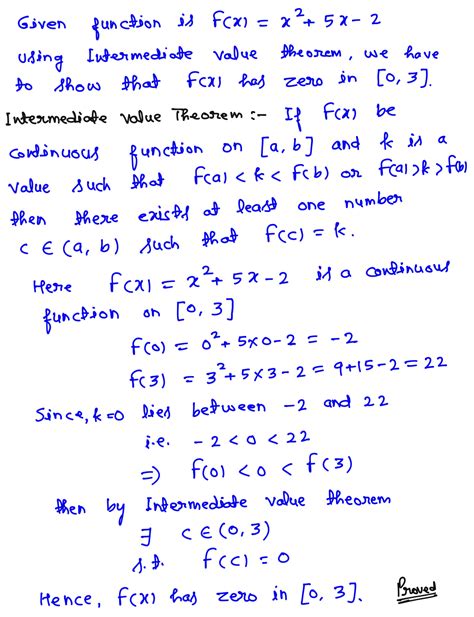 Given function is f(x) = x² + 5x - 2
using Intermediate value theorem, we have
to show that f(x) has zero in [0, 3].
Intermediate value Theorem :- If f(x) be
continuous function on [a, b] and k is a
value such that f(a) < k < f(b) or f(a) > k > f(b)
then there exists at least one number
c ∈ (a, b) such that f(c) = k.
Here f(x) = x² + 5x - 2 is a continuous
function on [0, 3]
f(0) = 0² + 5×0 - 2 = -2
f(3) = 3² + 5×3 - 2 = 9+15-2 = 22
Since, k=0 lies between -2 and 22
i.e. -2 < 0 < 22
⇒ f(0) < 0 < f(3)
then by Intermediate value theorem
∃ c ∈ (0, 3)
s.t. f(c) = 0
Hence, f(x) has zero in [0, 3]. Proved